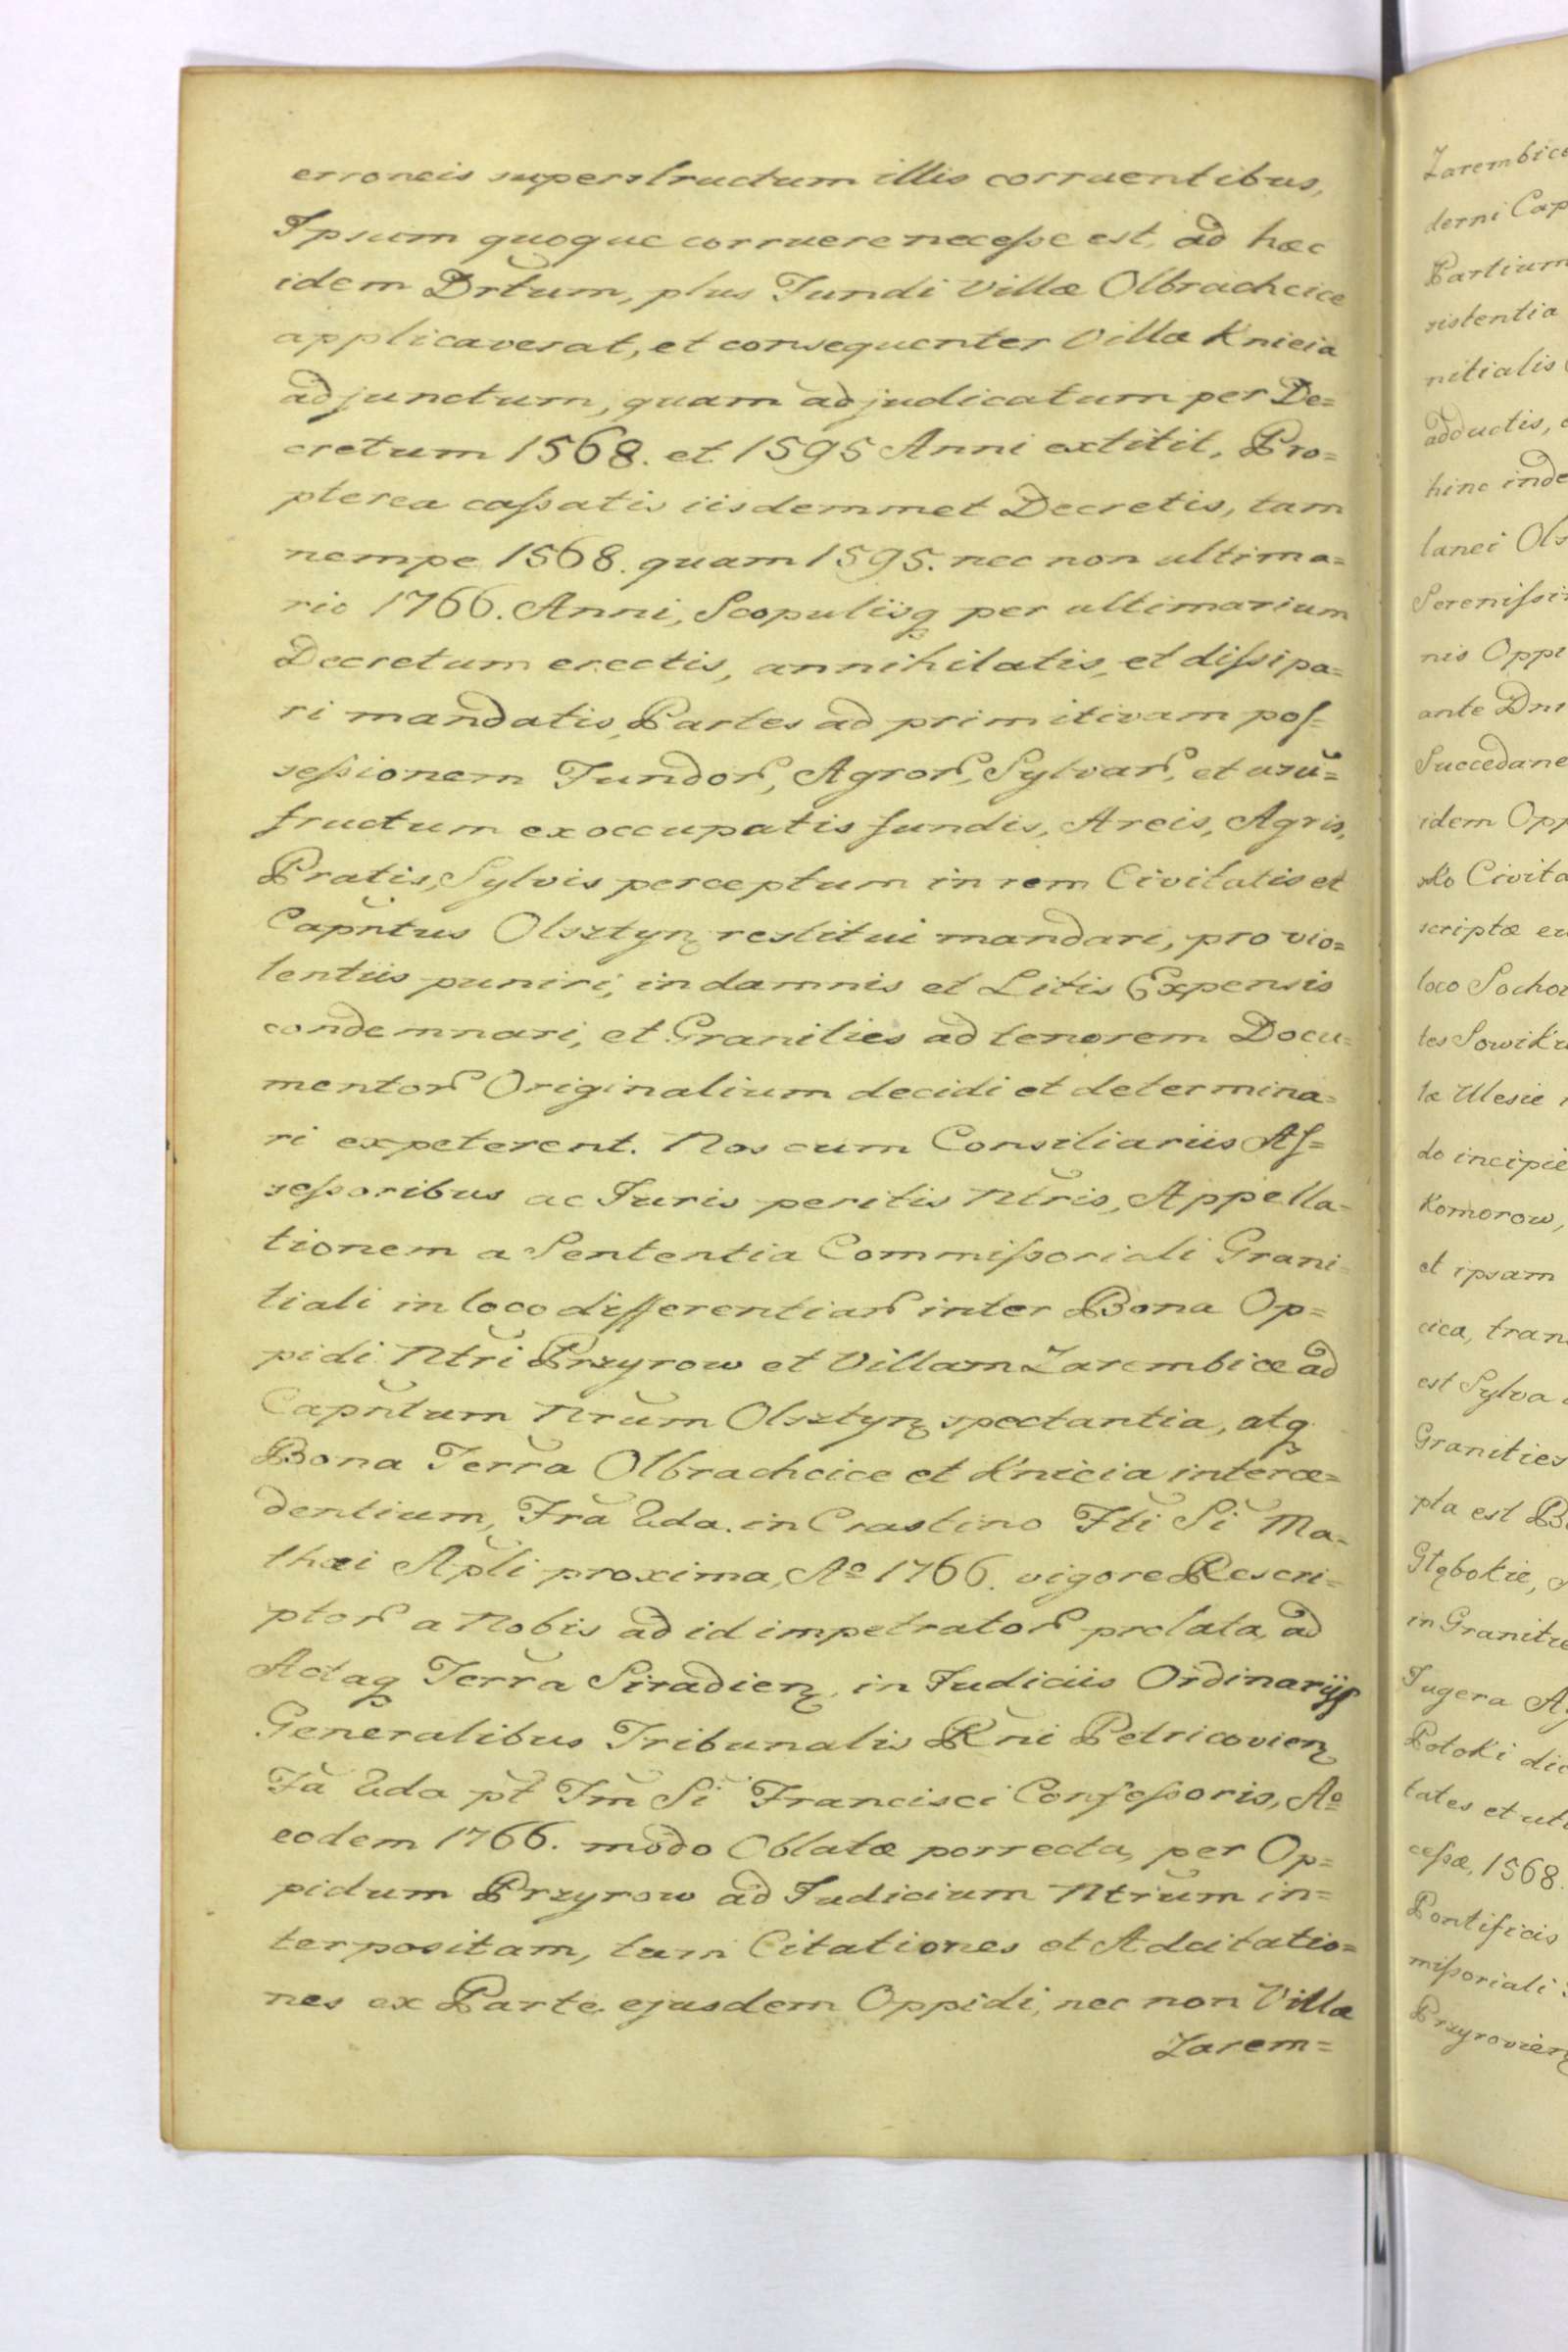 erroneis superstructum illis corruentibus,
Ipsum quoque corruere necesse est, ad hæc
idem Drtum, plus Fundi Villæ Olbrachcice
applicaverat, et consequenter Villæ Knieia
adjunctum, quam adjudicatum per De=
cretum 1568. et 1595 Anni extitit, Pro=
pterea cassatis iisdemmet Decretis, tam
nempe 1568. quam 1595. nec non ultima=
rio 1766. Anni, Scopulisq per ultimarium
Decretum erectis, annihilatis, et dissipa=
ri mandatis, Partes ad primitivam pos=
sessionem Fundor, Agror, Sylvar, et usu=
fructum ex occupatis fundis, Areis, Agris,
Pratis, Sylvis perceptum in rem Civitatis et
Capntus Olsztyn restitui mandari, pro vio=
lentiis puniri, in damnis et Litis Expensis
condemnari, et Granities ad tenorem Docu=
mentor Originalium decidi et determina=
ri expeterent. Nos cum Consiliariis As=
sessoribus ac Juris peritis Ntris, Appella=
tionem a Sententia Commissoriali Grani=
tiali in loco differentiar inter Bona Op=
pidi Ntri Przyrow et Villam Zarembice ad
Capntum Nrum Olsztyn spectantia, atq
Bona Terra Olbrachcice et Knieia interce=
dentium, Fra 2da. in Crastino Fti Si Ma=
thæi Apli proxima, Ao 1766. vigore Rescri=
ptor a Nobis ad id impetrator prolata, ad
Actaq Terra Siradien, in Judiciis Ordinarijs
Generalibus Tribunalis Rni Petricovien
Fa 2da pt Fm Si Francisci Confessoris, Ao
eodem 1766. modo Oblatæ porrecta, per Op=
pidum Przyrow ad Judicium Ntrum in=
terpositam, tum Citationes et Adcitatio=
nes ex Parte ejusdem Oppidi, nec non Villæ
Zarem=
Zarembice
derni Cap
Partium
sistentia
nitialis
adductis,
hinc inde
lanei Ols
Serenissi
nis Oppi
ante Dni
Succedane
idem Opp
Civita
scriptæ
loco Sochor
tes Sowik
læ Ulesie
do incipie
Komorow,
et ipsam
cica, tran
est Sylva
Granities
pta est B
Głębokie,
in Granitie
Jugera
Potoki dic
tates et uti
cessæ, 1568.
Pontificis
missoriali
Przyrovien